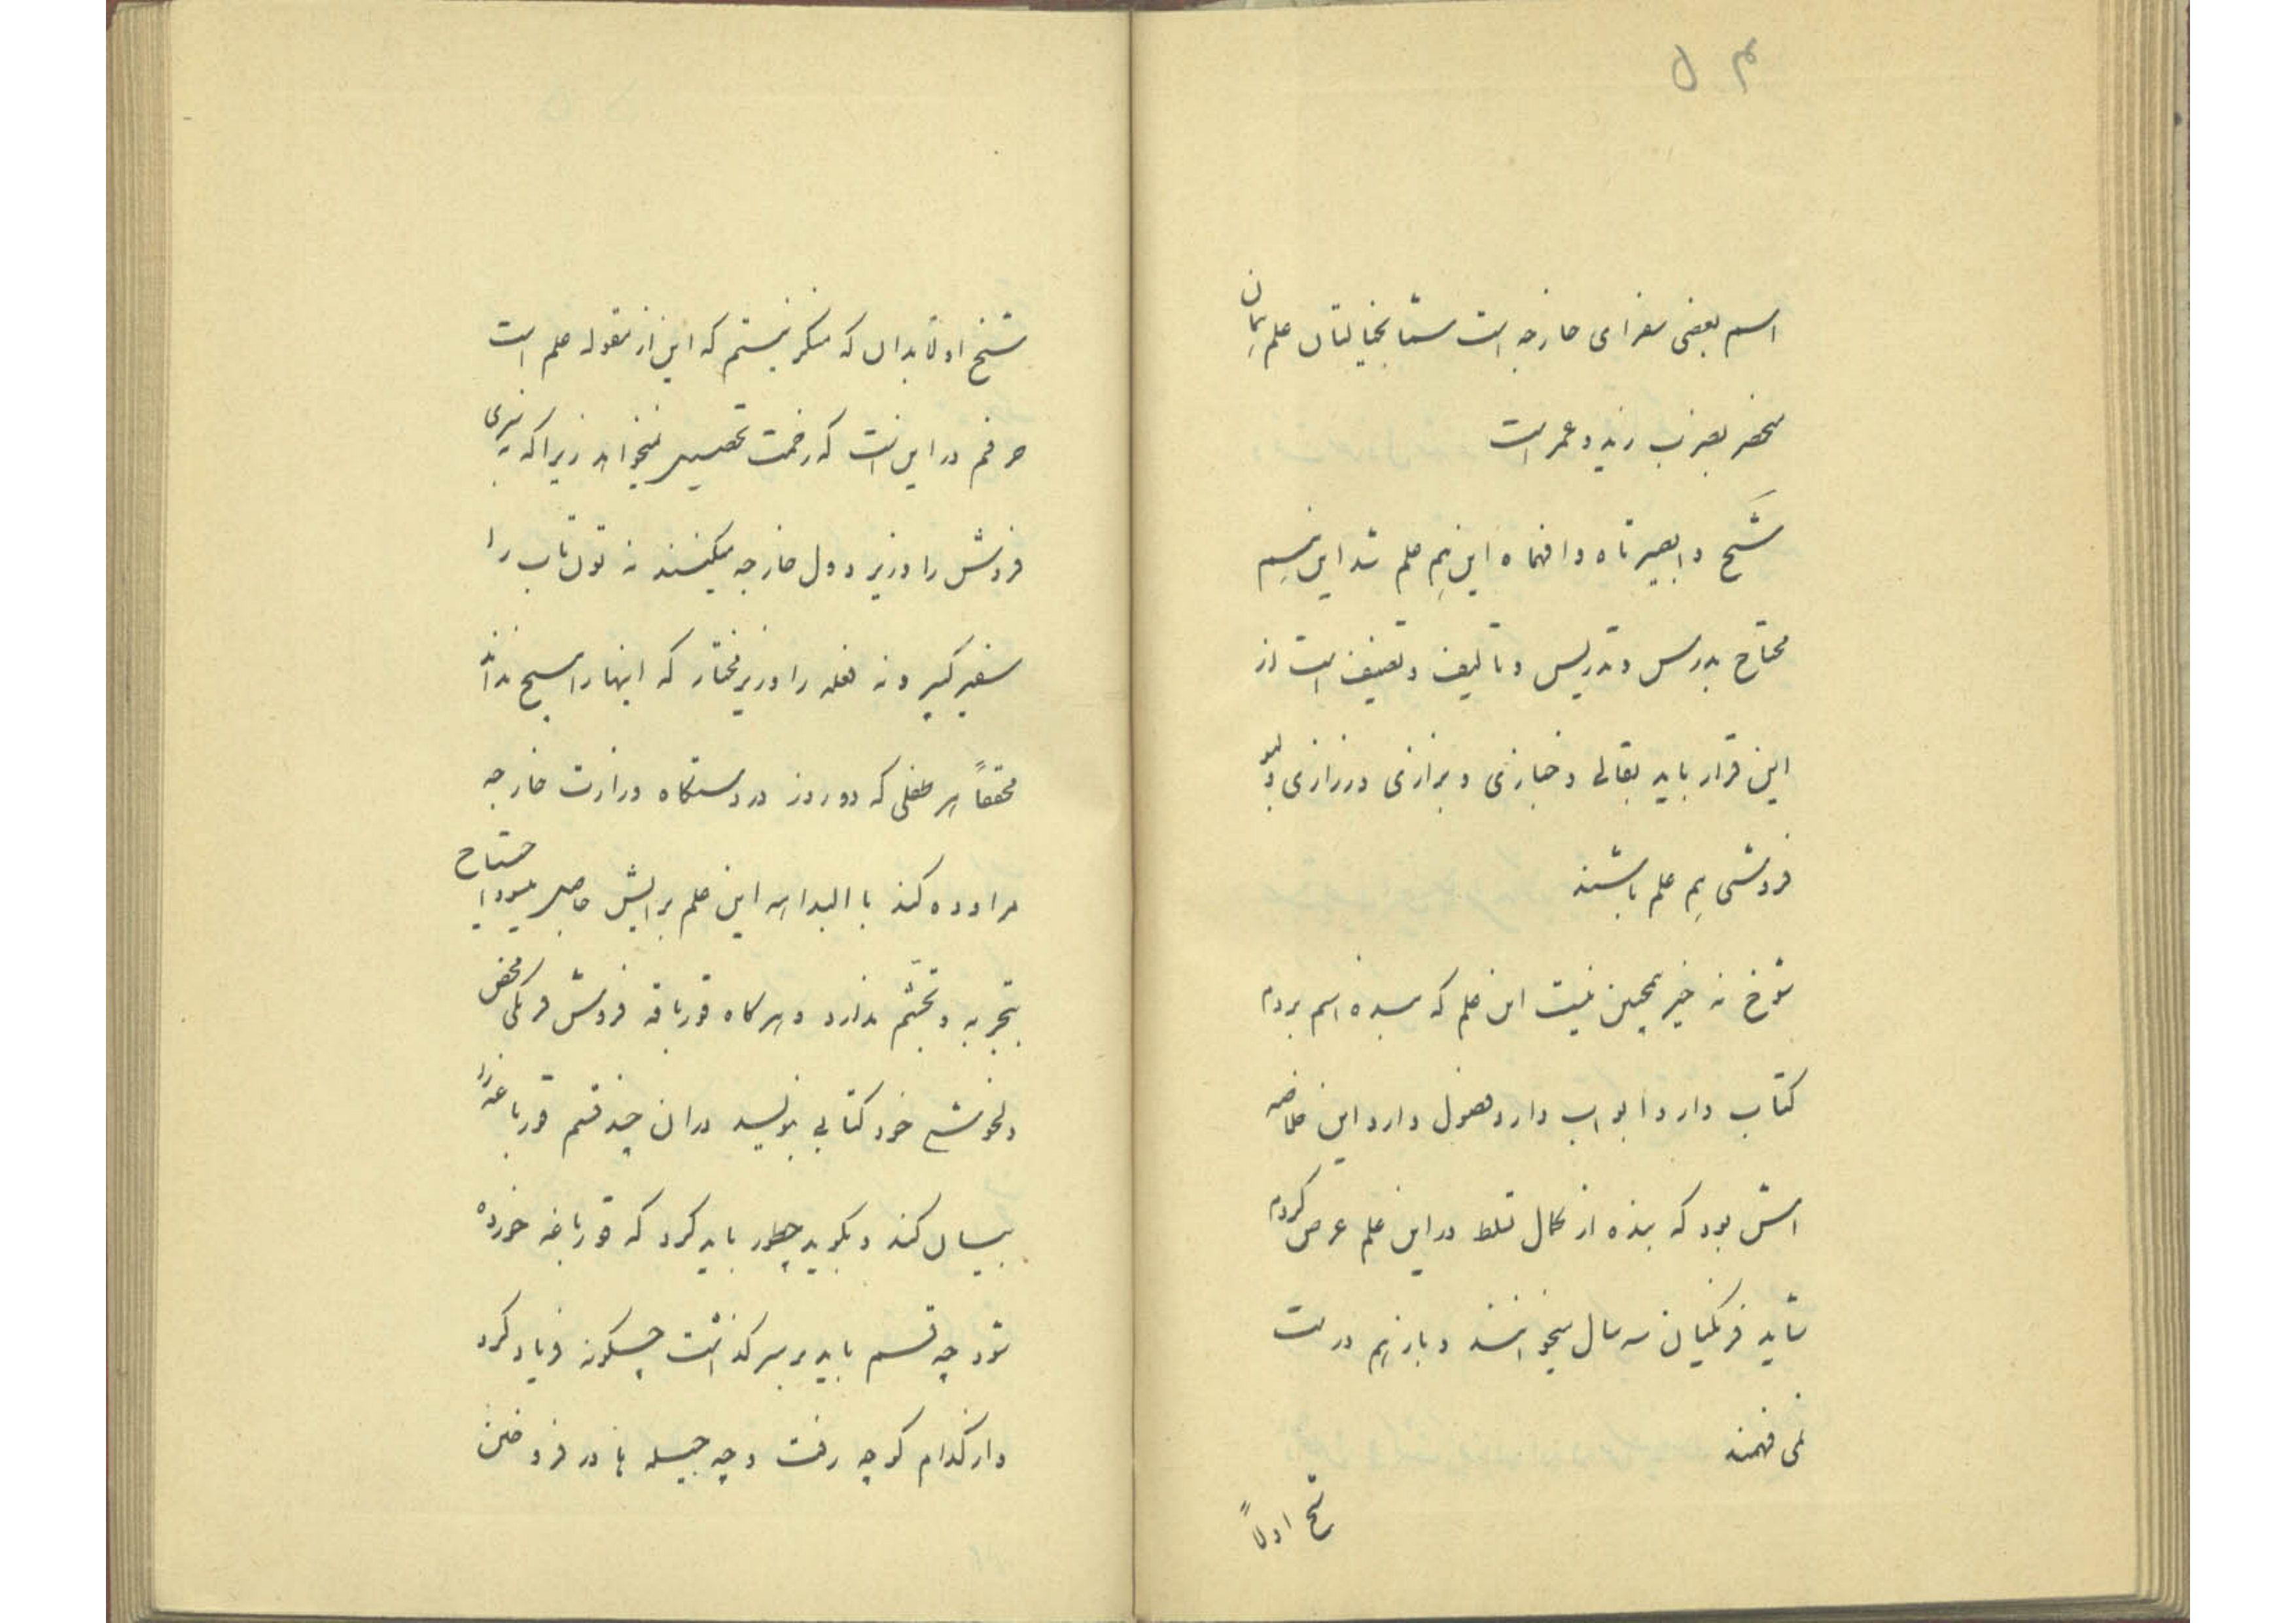 ۵۴
اسم بعضی سفرای خارجه است شما بخیالتان علم همان
منحصر بضرب زید و عمر است
شیخ وابصیرتاه وافهماه این هم علم شد این هم
محتاج بدرس و تدریس و تألیف و تصنیف است از
این قرار باید بقالی و خبازی و بزازی و رزازی و لبو
فروشی هم علم باشند
شوخ نه خیر همچین نیست این علم که بنده اسم بردم
کتاب دارد ابواب دارد فصول دارد این خلاصه
اش بود که بنده از کمال تسلط در این علم عرض کردم
شاید فرنگیان سه سال میخوانند و باز هم درست
نمی فهمند
شیخ اولاً
شیخ اولا بدان که منکر نیستم که این از مقوله علم است
حرفم در این است که زحمت تحصیل نمیخواهد زیرا که نه سبزی
فروش را وزیر دول خارجه میکنند نه تون تاب را
سفیر کبیر و نه فعله را وزیر مختار که اینها را هیچ ندانند
محققاً هر طفلی که دو روز در دستگاه وزارت خارجه
مراوده کند با البداهه این علم برایش حاصل میشود احتیاج
بتجربه و تجشّم ندارد و هرگاه قورباقه فروش فرنگی محض
دلخوشی خود کتابی بنویسد در ان چند قسم قورباغه را
بیان کند و بگوید چطور باید کرد که قورباغه خورده
شود چه قسم باید بر سر گذاشت چگونه فریاد کرد
و از کدام کوچه رفت و چه حیله ها در فروختن